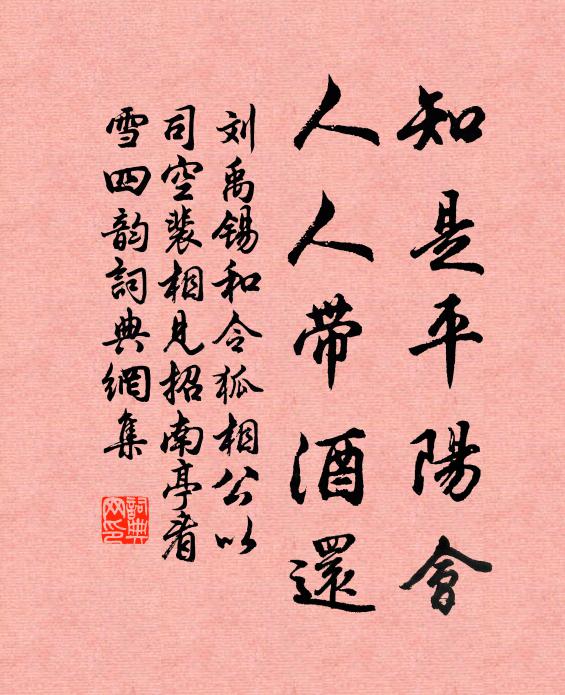 知是平陽會
人人带酒還
刘禹锡和令狐相公以
司空裴相見招南亭看
雪四韵詞典網集
詞典
网印